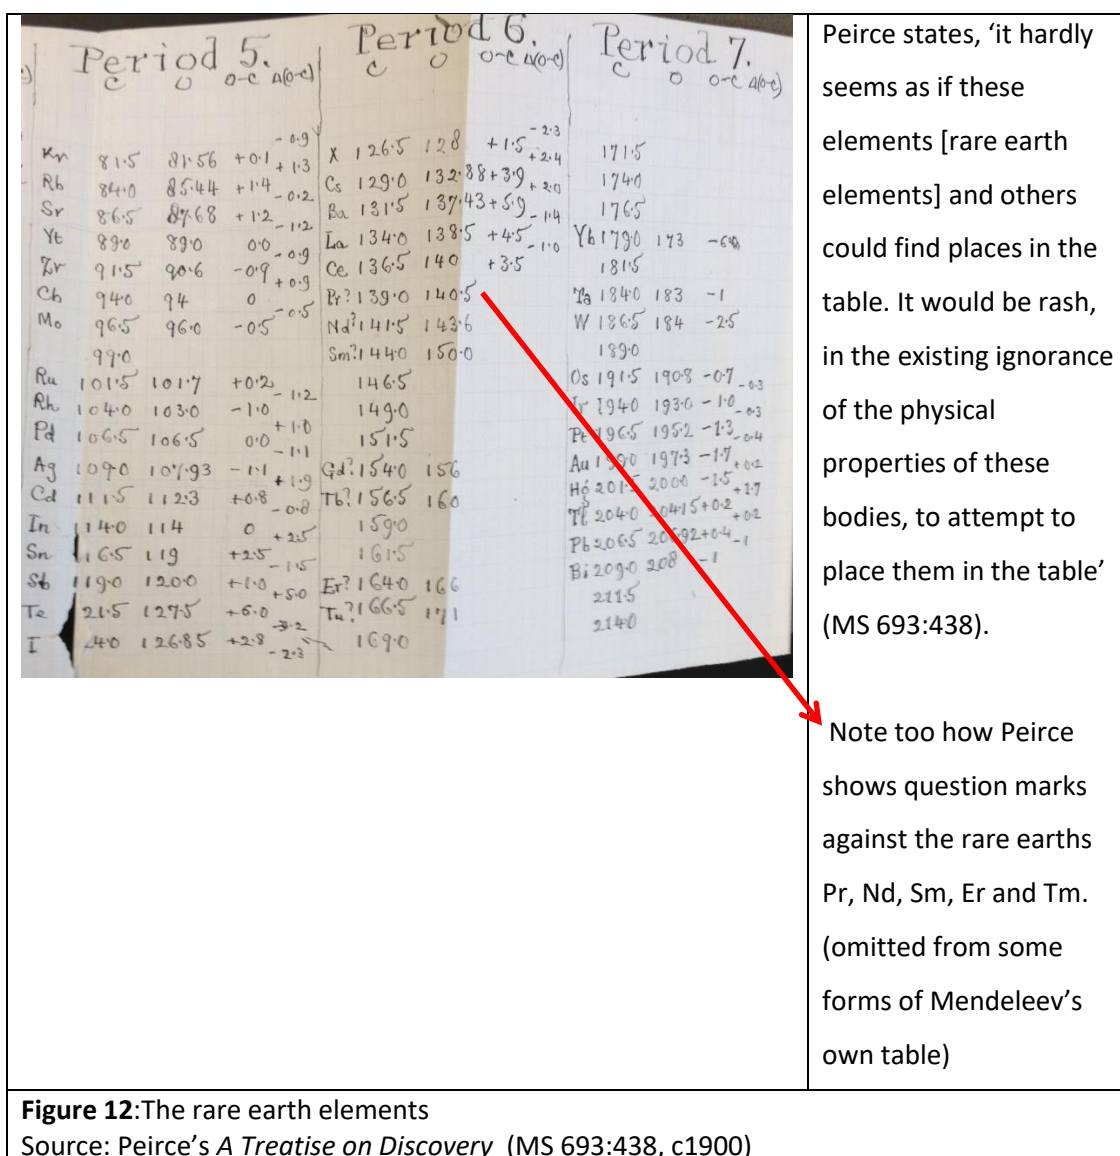 Period 5.
C O O-C Δ(O-C)
- 0.9
Kr 81.5 81.56 +0.1
+ 1.3
Rb 84.0 85.44 +1.4
- 0.2
Sr 86.5 87.68 +1.2
- 1.2
Yt 89.0 89.0 0.0
- 0.9
Zr 91.5 90.6 -0.9
+ 0.9
Cb 94.0 94 0
- 0.5
Mo 96.5 96.0 -0.5
99.0
Ru 101.5 101.7 +0.2
- 1.2
Rh 104.0 103.0 -1.0
+ 1.0
Pd 106.5 106.5 0.0
- 1.1
Ag 109.0 107.93 -1.1
+ 1.9
Cd 111.5 112.3 +0.8
- 0.8
In 114.0 114 0
+ 2.5
Sn 116.5 119 +2.5
- 1.5
Sb 119.0 120.0 +1.0
+ 5.0
Te 21.5 127.5 +6.0
-3.2
I 24.0 126.85 +2.8
- 2.3
Period 6.
C O O-C Δ(O-C)
- 2.3
X 126.5 128 +1.5
+ 2.4
Cs 129.0 132.88 +3.9
+ 2.0
Ba 131.5 137.43 +5.9
- 1.4
La 134.0 138.5 +4.5
- 1.0
Ce 136.5 140 +3.5
Pr? 139.0 140.5
Nd? 141.5 143.6
Sm? 144.0 150.0
146.5
149.0
151.5
Gd? 154.0 156
Tb? 156.5 160
159.0
161.5
Er? 164.0 166
Tu? 166.5 171
169.0
Period 7.
C O O-C Δ(O-C)
171.5
174.0
176.5
Yb 179.0 173
181.5
Ta 184.0 183 -1
W 186.5 184 -2.5
189.0
Os 191.5 190.8 -0.7
-0.3
Ir 194.0 193.0 -1.0
-0.3
Pt 196.5 195.2 -1.3
-0.4
Au 199.0 197.3 -1.7
+0.2
Hg 201.5 200.0 -1.5
+1.7
Tl 204.0 204.15 +0.2
+0.2
Pb 206.5 206.92 +0.4
-1
Bi 209.0 208 -1
211.5
214.0
Peirce states, ‘it hardly
seems as if these
elements [rare earth
elements] and others
could find places in the
table. It would be rash,
in the existing ignorance
of the physical
properties of these
bodies, to attempt to
place them in the table’
(MS 693:438).
Note too how Peirce
shows question marks
against the rare earths
Pr, Nd, Sm, Er and Tm.
(omitted from some
forms of Mendeleev’s
own table)
Figure 12:The rare earth elements
Source: Peirce’s A Treatise on Discovery (MS 693:438, c1900)